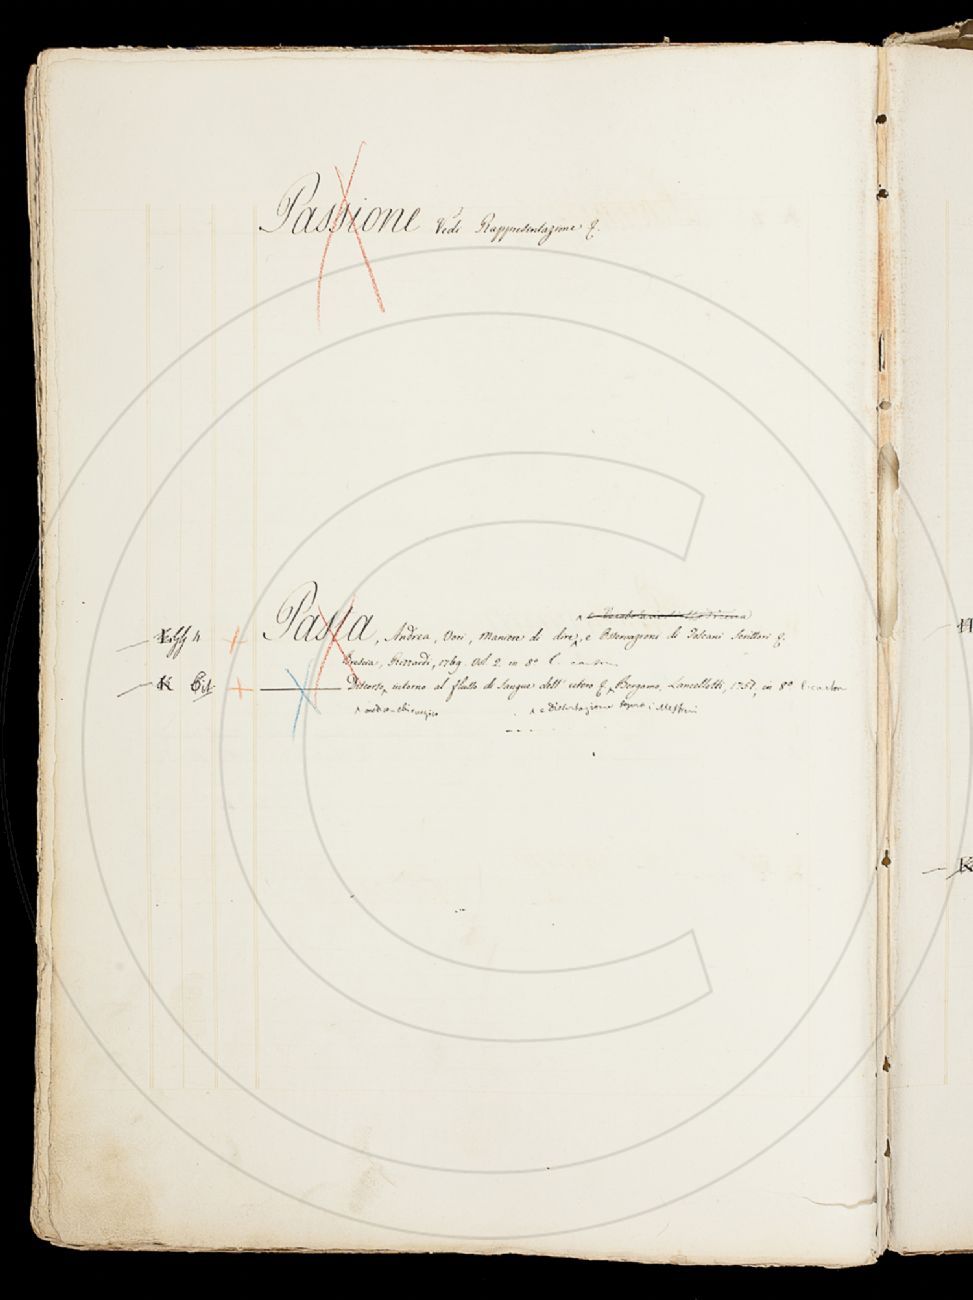 Passione Vedi Rappresentazione &.
Pasta, Andrea, Voci, Maniere di dire, e Osservazioni di Toscani Scrittori &.
Brescia, Grizzardi, 1769. Vol 2. in 8º
Discorso intorno al flusso di Sangue dell' utero & Bergamo, Lancellotti, 1757, in 8º
medico-chirurgico
e Disertazione sopra i Mestrui